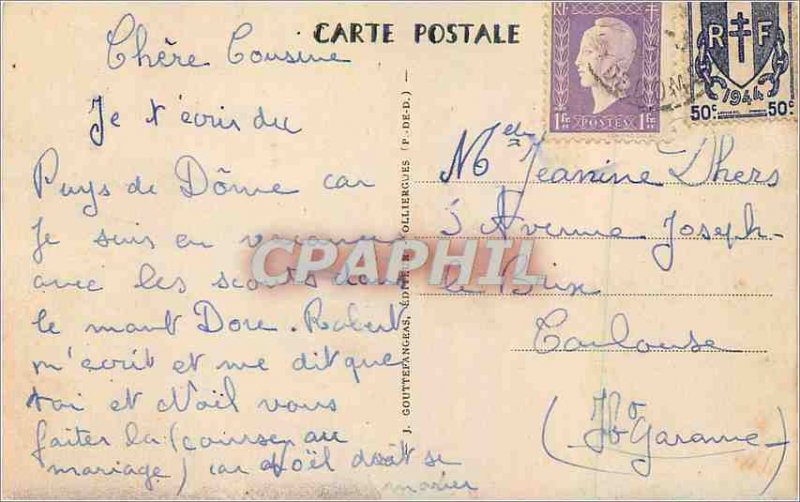 CARTE POSTALE
RF
1fr POSTES 1fr
R F
1944
50c 50c
Chère Cousine
Je t'écris du
Puys de Dôme car
Je suis en vacances
avec les scouts dans
le mont Dore. Robert
m'écrit et me dit que
toi et Noël vous
faites la (course au
mariage) car Noël doit se
marier
J. GOUTTEFANGEAS, ÉDITEUR OLLIERGUES (P.-DE-D.)
Melle Jeanine Dhers
Avenue Joseph-
le Brix
Toulouse
(Hte Garonne)
CPAPHIL